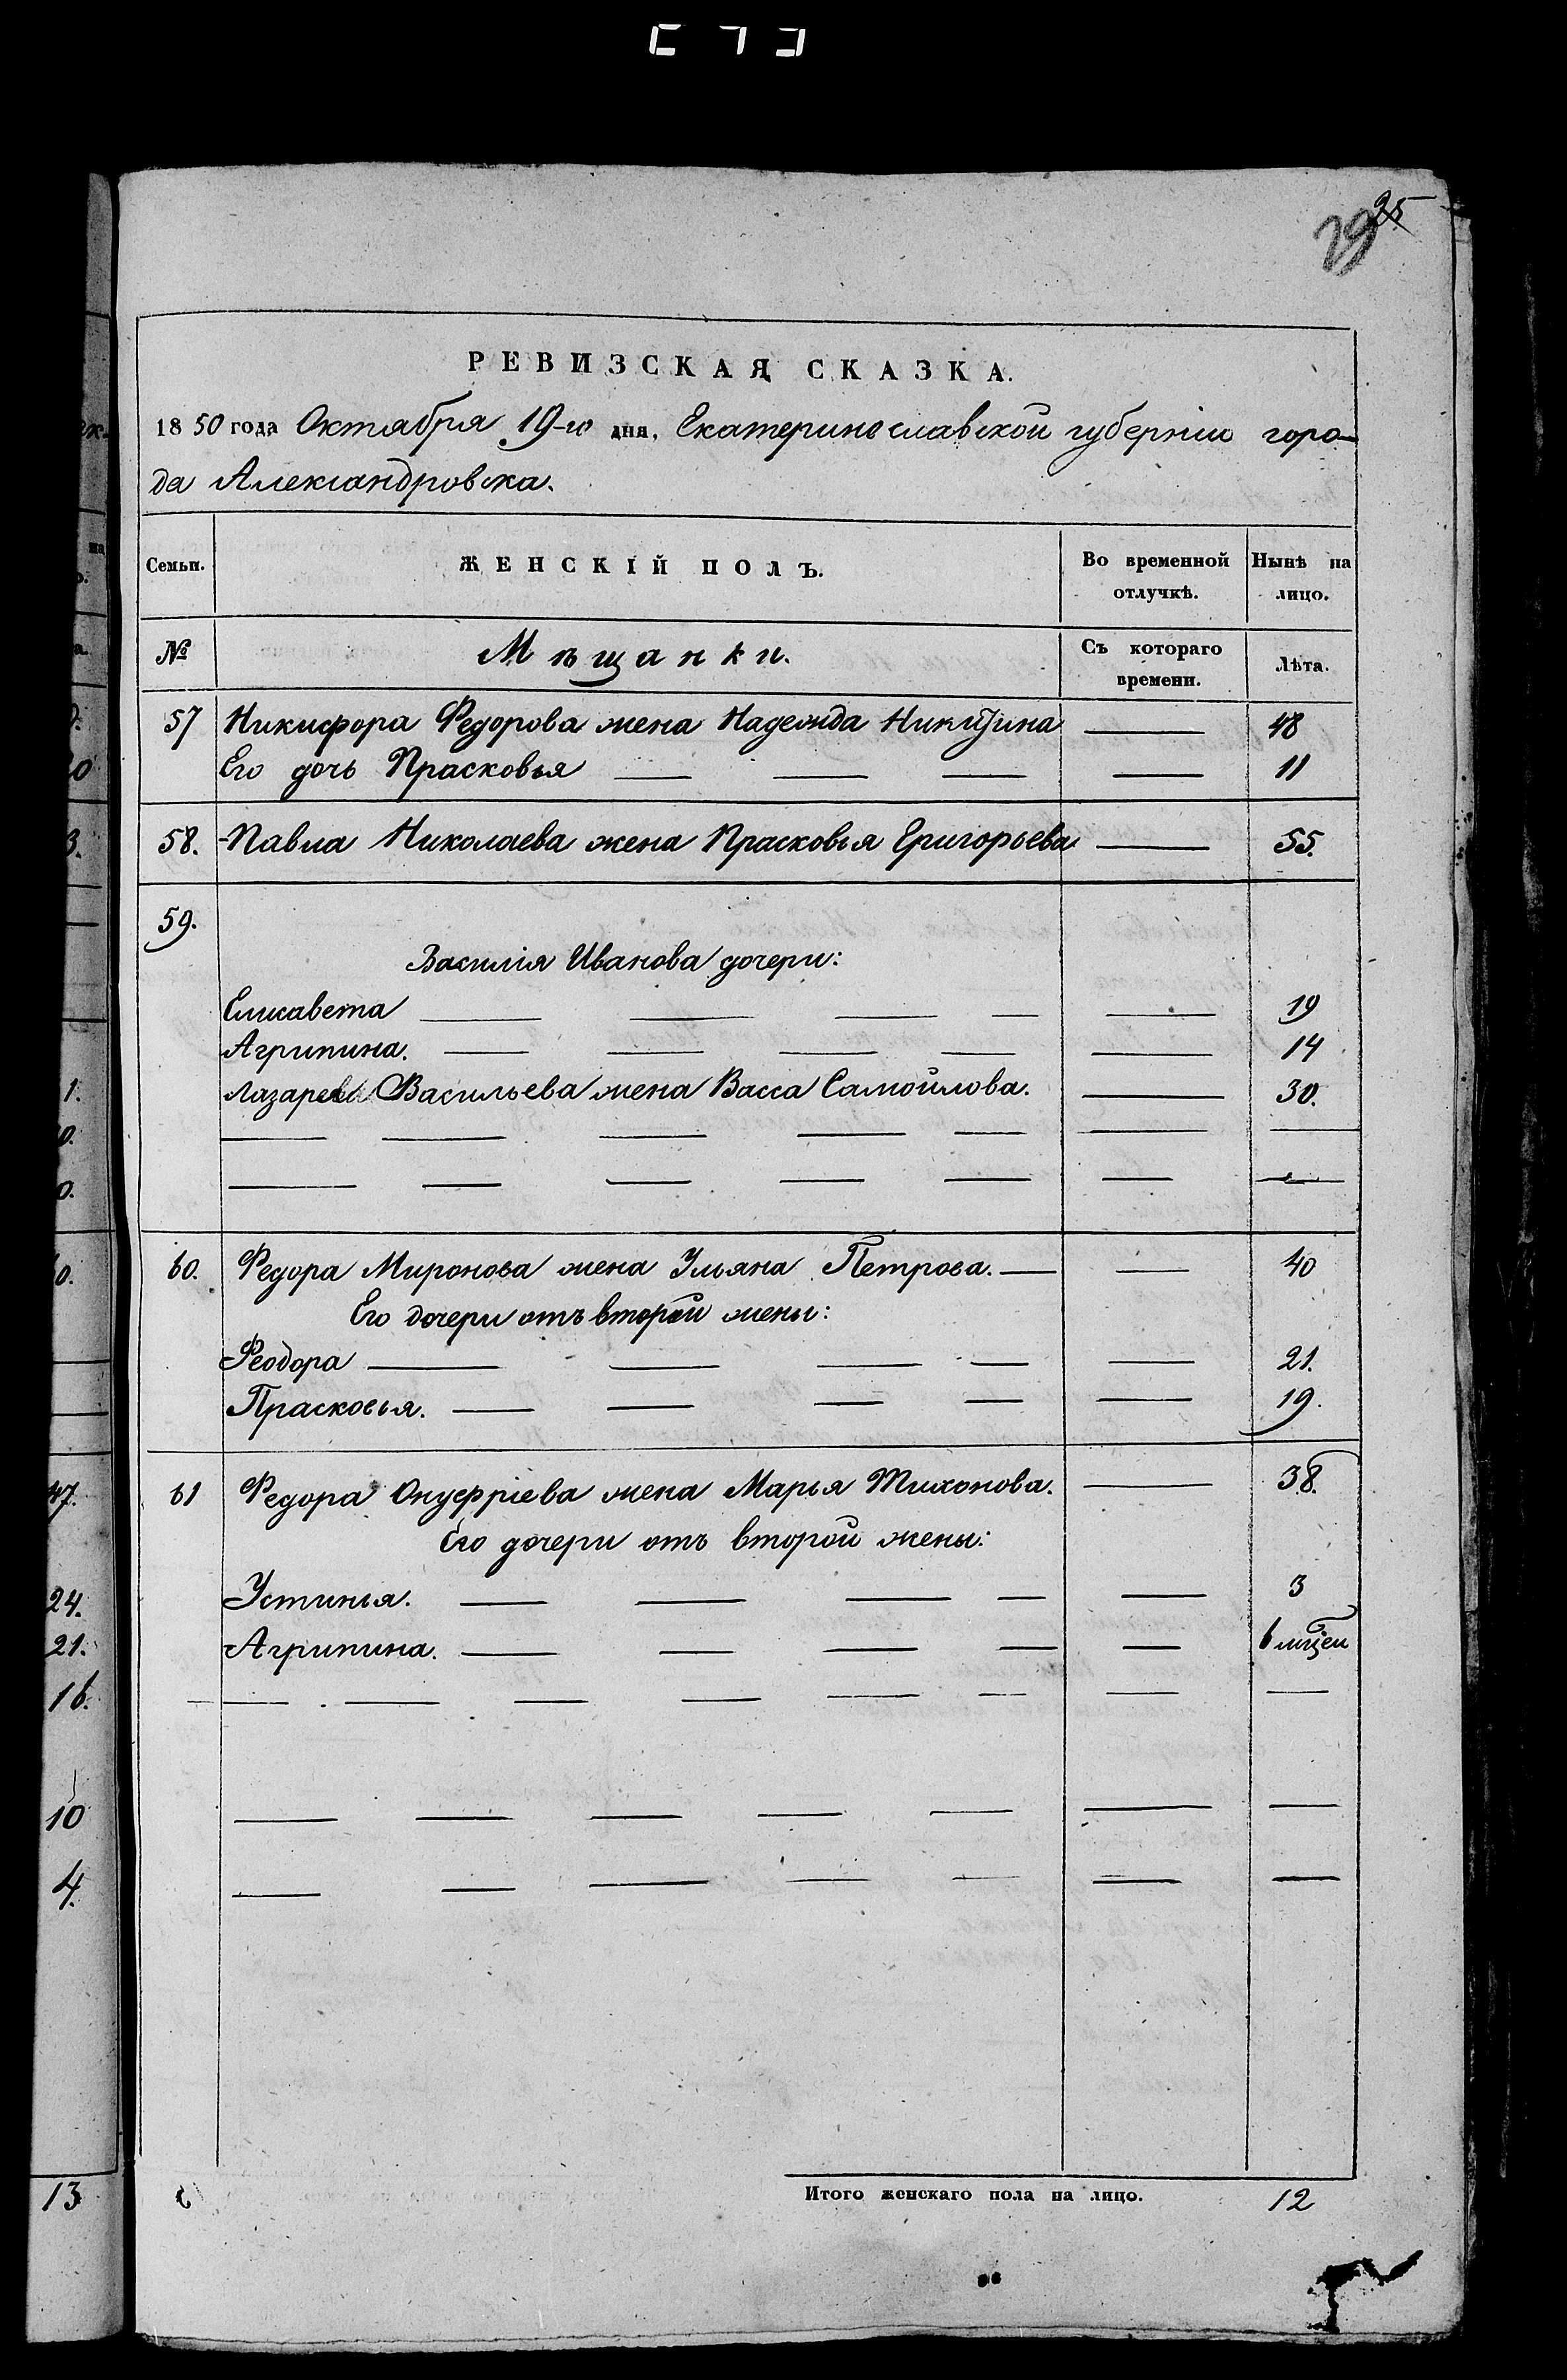 25
29
РЕВИЗСКАЯ СКАЗКА.
1850 года Октября 19-го дня, Екатеринославской губерніи горо-
да Александровска.
Семьи. ЖЕНСКІЙ ПОЛЪ. Во временной отлучкѣ. Нынѣ на лицо.
№ Мѣщанки. Съ котораго времени. Лѣта.
57 Никифора Федорова жена Надежда Никитина — 48
Его дочь Прасковья — — — — 11
58. Павла Николаева жена Прасковья Григорьева — 55.
59.
Василія Иванова дочери:
Елисавета — — — — — 19
Агрипина. — — — — — 14
Лазарева Васильева жена Васса Самойлова. — 30.
— — — — — — —
— — — — — — —
60. Федора Миронова жена Ульяна Петрова. — — 40
Его дочери отъ второй жены:
Феодора — — — — — 21.
Прасковья. — — — — — 19.
61 Федора Онуфріева жена Марья Тихонова. — 38.
Его дочери отъ второй жены:
Устинья. — — — — — 3
Агрипина. — — — — — 6 мѣсеи
— — — — — — — —
— — — — — — —
— — — — — — —
Итого женскаго пола на лицо. 12
47.
24.
21.
16.
10
4.
13